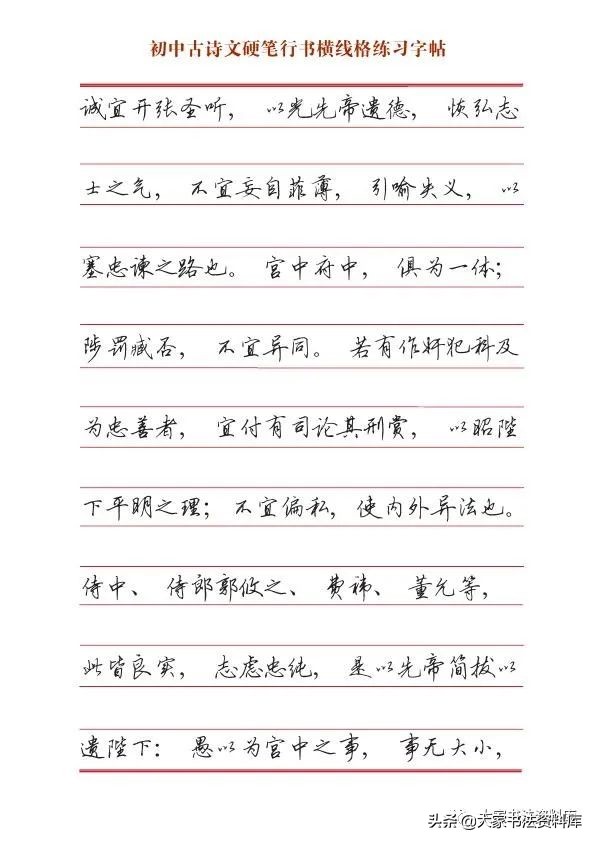 初中古诗文硬笔行书横线格练习字帖
诚宜开张圣听， 以光先帝遗德， 恢弘志
士之气， 不宜妄自菲薄， 引喻失义， 以
塞忠谏之路也。 宫中府中， 俱为一体；
陟罚臧否， 不宜异同。 若有作奸犯科及
为忠善者， 宜付有司论其刑赏， 以昭陛
下平明之理； 不宜偏私，使内外异法也。
侍中、 侍郎郭攸之、 费祎、 董允等，
此皆良实， 志虑忠纯， 是以先帝简拔以
遗陛下： 愚以为宫中之事， 事无大小，
大家书法资料库
头条@大家书法资料库